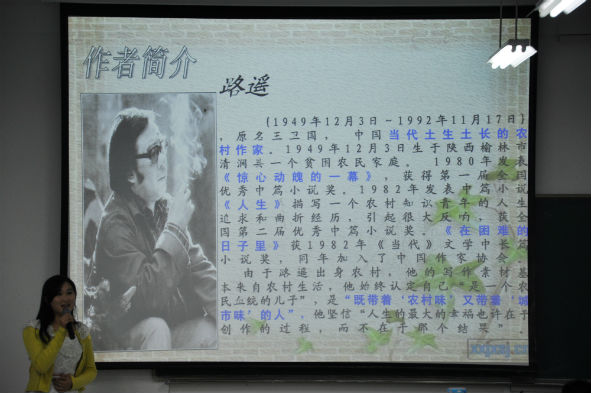 作者简介
路遥
(1949年12月3日~1992年11月17日)
，原名王卫国， 中国当代土生土长的农
村作家。1949年12月3日生于陕西榆林市
清涧县一个贫困农民家庭。 1980年发表
《惊心动魄的一幕》，获得第一届全国
优秀中篇小说奖。1982年发表中篇小说
《人生》描写一个农村知识青年的人生
追求和曲折经历，引起很大反响，获全
国第二届优秀中篇小说奖。《在困难的
日子里》获1982年《当代》文学中长篇
小说奖，同年加入了中国作家协会。
由于路遥出身农村，他的写作素材基
本来自农村生活，他始终认定自己“是一个农
民血统的儿子”，是“既带着‘农村味’又带着‘城
市味’的人”，他坚信“人生的最大的幸福也许在于
创作的过程，而不在于那个结果”。